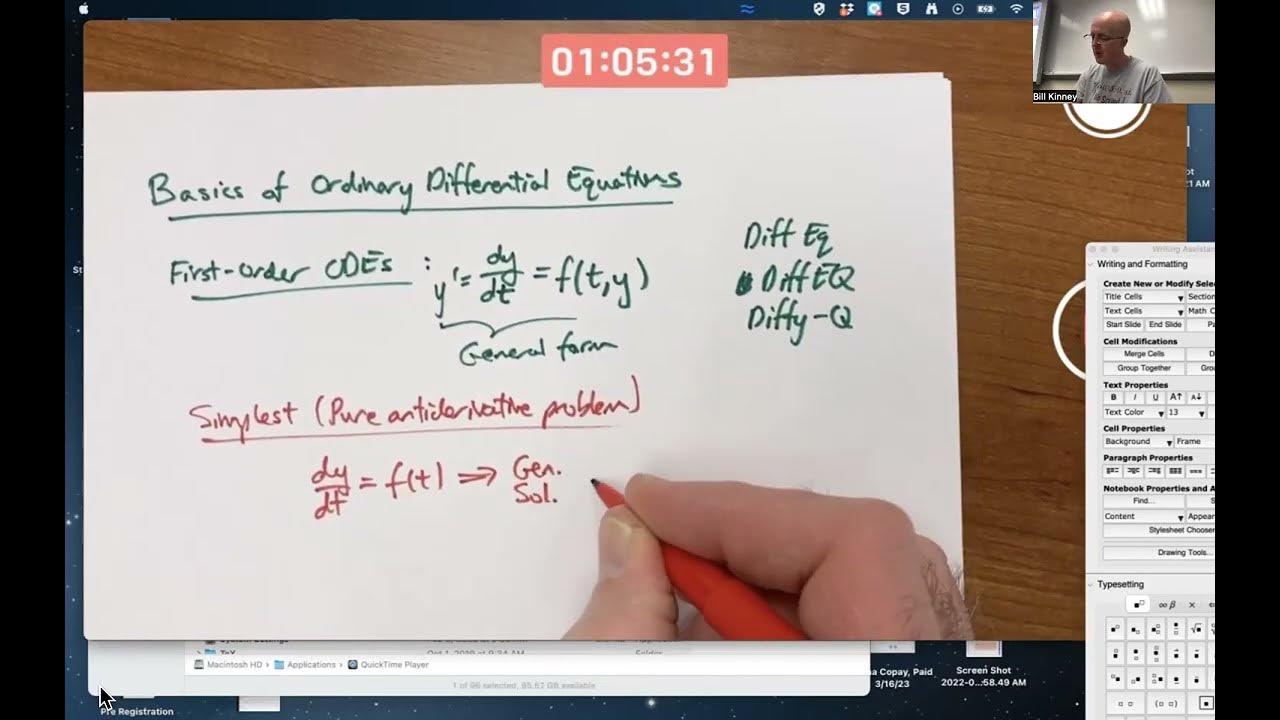 01:05:31
Bill Kinney
Basics of Ordinary Differential Equations
First-order ODEs : y' = dy/dt = f(t,y)
General form
Diff Eq
DiffEQ
Diffy-Q
Simplest (Pure antiderivative problem)
dy/dt = f(t) ⇒ Gen. Sol.
Writing and Formatting
Create New or Modify Selec
Title Cells
Text Cells
Math C
Start Slide
End Slide
Cell Modifications
Merge Cells
Group Together
Text Properties
B I U
Text Color
13
Cell Properties
Background
Frame
Paragraph Properties
Notebook Properties and A
Find...
Content
Appear
Stylesheet Chooser
Drawing Tools...
Typesetting
Macintosh HD › Applications › QuickTime Player
1 of 96 selected, 85.61 GB available
Copay, Paid
3/16/23
Screen Shot
2022-0...58.49 AM
Pre Registration